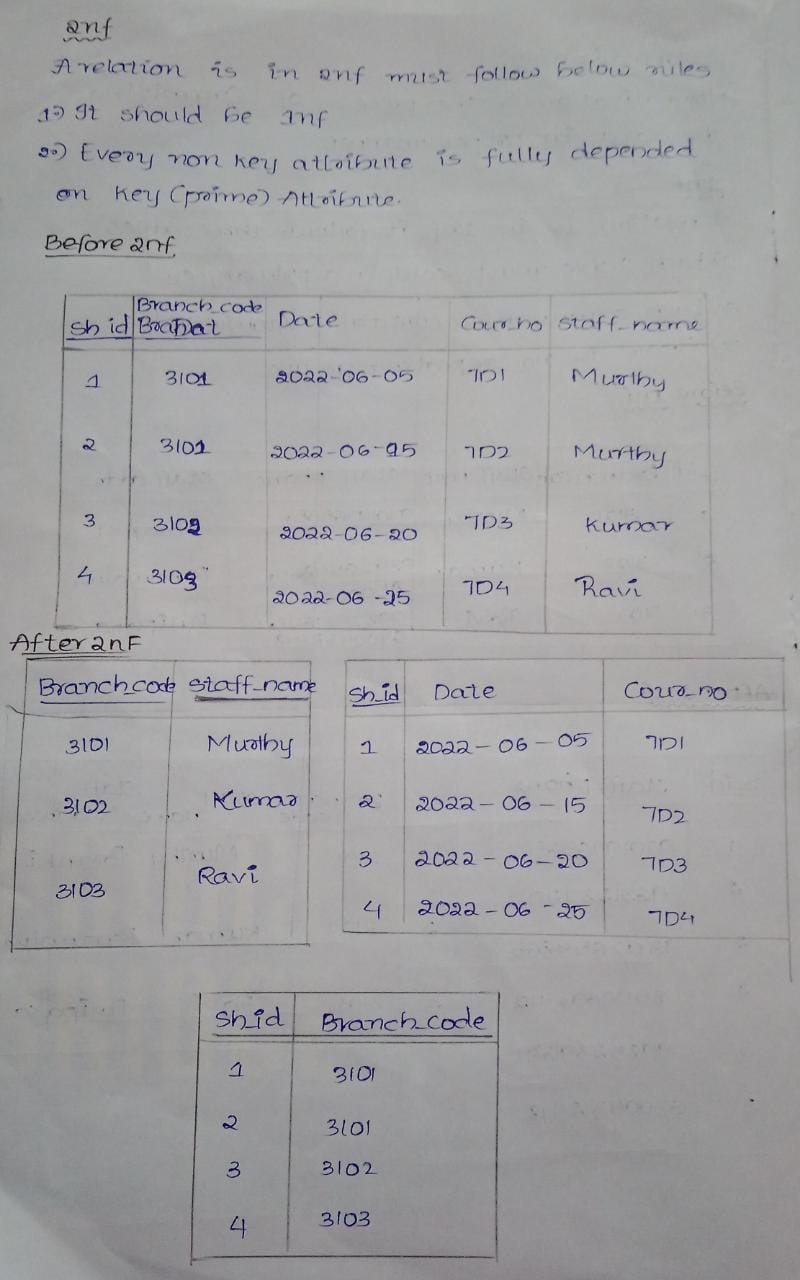 2nf
A relation is in 2nf must follow below rules
1) It should be 1nf
2) Every non key attribute is fully depended
on Key (prime) Attribute.
Before 2nf
Sh id Branch_code Date Cour_no Staff_name
1 3101 2022-06-05 7D1 Murthy
2 3101 2022-06-15 7D2 Murthy
3 3102 2022-06-20 7D3 Kumar
4 3103 2022-06-25 7D4 Ravi
After 2nF
Branch_code Staff_name
3101 Murthy
3102 Kumar
3103 Ravi
Sh_id Date Cour_no
1 2022-06-05 7D1
2 2022-06-15 7D2
3 2022-06-20 7D3
4 2022-06-25 7D4
Sh_id Branch_code
1 3101
2 3101
3 3102
4 3103